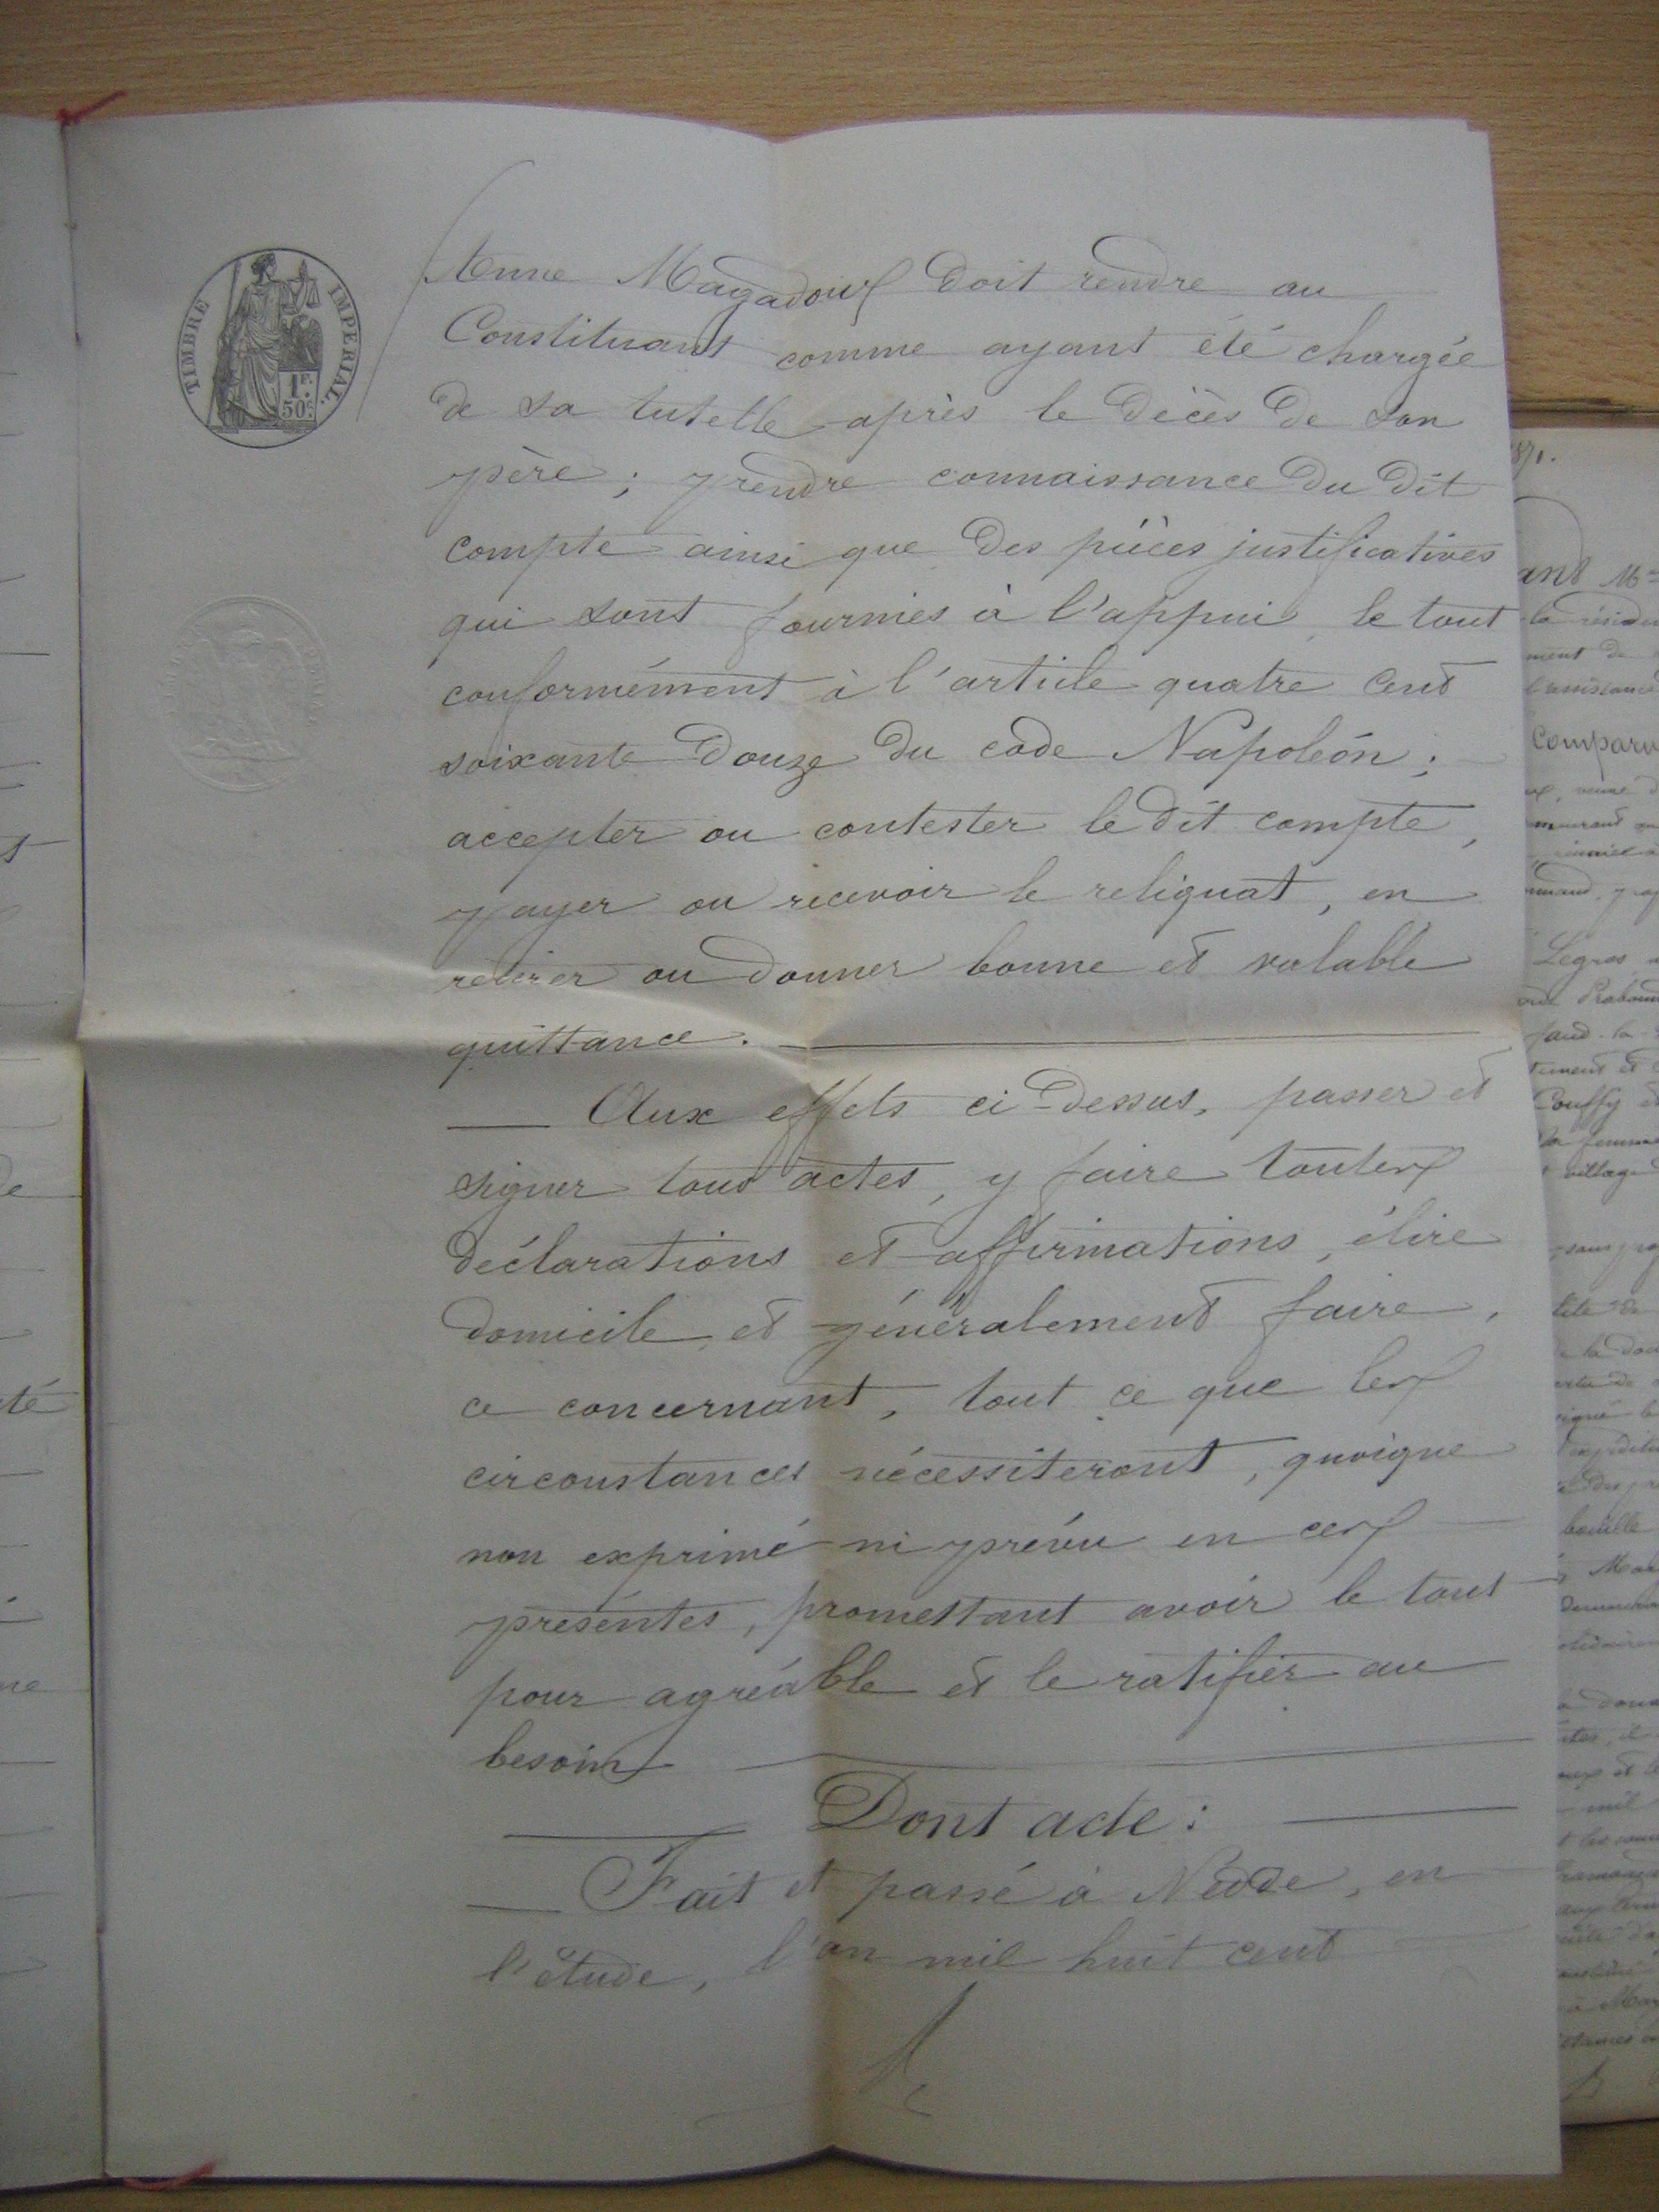 TIMBRE IMPERIAL.
1 F. 50 c.
même Magadoux doit rendre au
Constituant comme ayant été chargé
de sa tutelle après le décès de son
père; prendre connaissance du dit
compte ainsi que des pièces justificatives
qui sont fournies à l'appui le tout
conformément à l'article quatre cent
soixante douze du code Napoléon;
accepter ou contester le dit compte,
payer ou recevoir le reliquat, en
retirer ou donner bonne et valable
quittance.
Aux effets ci-dessus, passer et
signer tous actes, y faire toutes
déclarations et affirmations, élire
domicile, et généralement faire,
ce concernant, tout ce que les
circonstances nécessiteront, quoique
non exprimé ni prévu en ces
présentes, promettant avoir le tout
pour agréable et le ratifier au
besoin
Dont acte:
Fait et passé à Nedde, en
l'étude, l'an mil huit cent